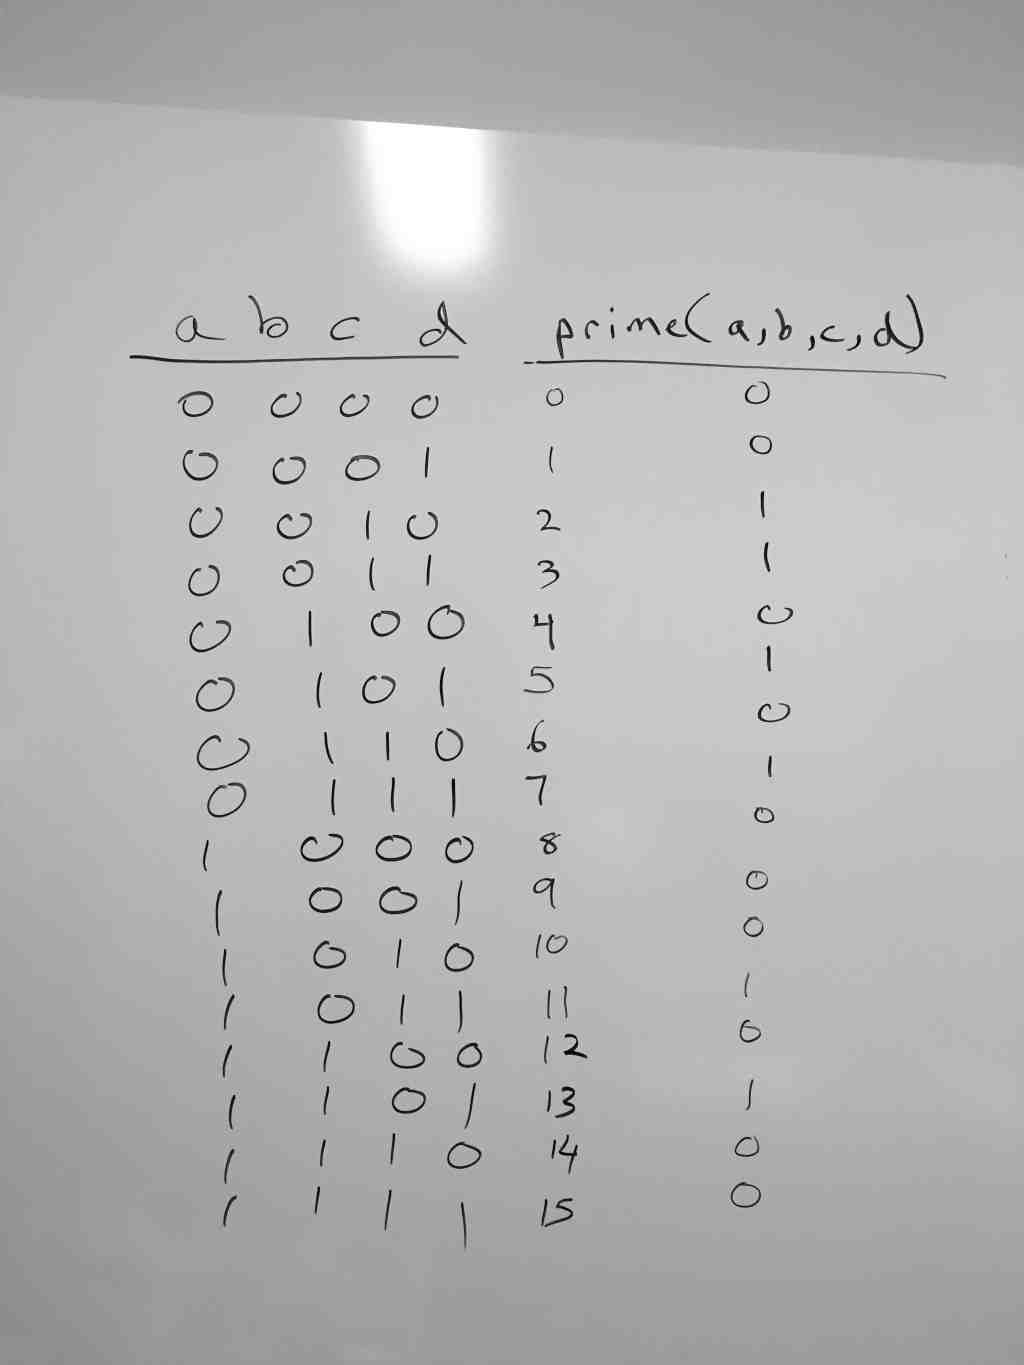 a b c d prime(a,b,c,d)
0 0 0 0 0 0
0 0 0 1 1 0
0 0 1 0 2 1
0 0 1 1 3 1
0 1 0 0 4 0
0 1 0 1 5 1
0 1 1 0 6 0
0 1 1 1 7 1
1 0 0 0 8 0
1 0 0 1 9 0
1 0 1 0 10 0
1 0 1 1 11 1
1 1 0 0 12 0
1 1 0 1 13 1
1 1 1 0 14 0
1 1 1 1 15 0